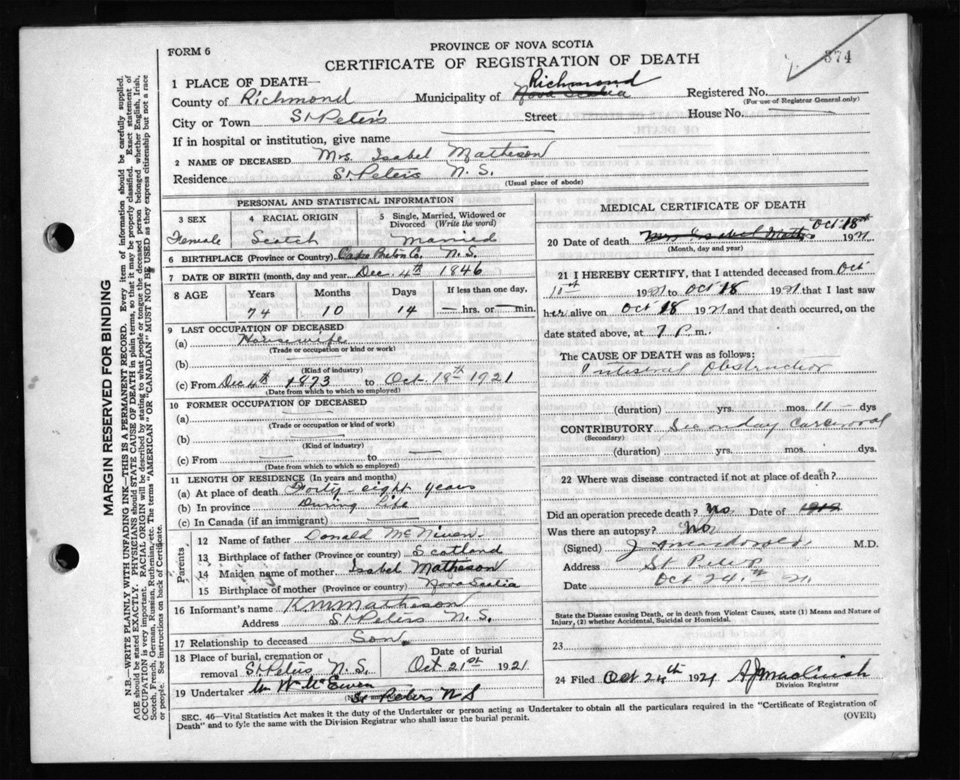 FORM 6
PROVINCE OF NOVA SCOTIA
374
CERTIFICATE OF REGISTRATION OF DEATH
1 PLACE OF DEATH—
County of Richmond Municipality of Nova Scotia Richmond Registered No.
(For use of Registrar General only)
City or Town St Peters Street House No.
If in hospital or institution, give name
2 NAME OF DECEASED Mrs. Isabel Matheson
Residence St Peters N. S.
(Usual place of abode)
PERSONAL AND STATISTICAL INFORMATION
3 SEX
Female
4 RACIAL ORIGIN
Scotch
5 Single, Married, Widowed or Divorced (Write the word)
Married
6 BIRTHPLACE (Province or Country) Cape Breton Co. N. S.
7 DATE OF BIRTH (month, day and year) Dec. 4th 1846
8 AGE Years Months Days If less than one day,
74 10 14 hrs. or min.
9 LAST OCCUPATION OF DECEASED
(a) Housewife
(Trade or occupation or kind or work)
(b)
(Kind of industry)
(c) From Dec 4th 1873 to Oct. 18th 1921
(Date from which to which so employed)
10 FORMER OCCUPATION OF DECEASED
(a)
(Trade or occupation or kind of work)
(b)
(Kind of industry)
(c) From to
(Date from which to which so employed)
11 LENGTH OF RESIDENCE (In years and months)
(a) At place of death Forty eight years
(b) In province During life
(c) In Canada (if an immigrant)
Parents
12 Name of father Donald McNiven.
13 Birthplace of father (Province or country) Scotland
14 Maiden name of mother Isabel Matheson
15 Birthplace of mother (Province or country) Nova Scotia
16 Informant's name K. M. Matheson
Address St Peters N. S.
17 Relationship to deceased Son.
18 Place of burial, cremation or removal St. Peters N. S.
Date of burial
Oct 21st 1921
19 Undertaker Wm McEwen
St Peters N S
MEDICAL CERTIFICATE OF DEATH
20 Date of death Mrs Isabel Math. Oct 18th 1921
(Month, day and year)
21 I HEREBY CERTIFY, that I attended deceased from Oct
1921 to Oct 18 1921 that I last saw
her alive on Oct 18 1921 and that death occurred, on the
date stated above, at 7 P. m.
The CAUSE OF DEATH was as follows:
Intestinal Obstruction
(duration) yrs. mos. 11 dys
CONTRIBUTORY
(Secondary)
(duration) yrs. mos. dys.
22 Where was disease contracted if not at place of death?
Did an operation precede death? No Date of
Was there an autopsy? No
(Signed) M.D.
Address St Peters
Date Oct 24th 21
State the Disease causing Death, or in death from Violent Causes, state (1) Means and Nature of Injury, (2) whether Accidental, Suicidal or Homicidal.
23
24 Filed Oct 24th 1921
Division Registrar
SEC. 46—Vital Statistics Act makes it the duty of the Undertaker or person acting as Undertaker to obtain all the particulars required in the "Certificate of Registration of
Death" and to fyle the same with the Division Registrar who shall issue the burial permit.
(OVER)
MARGIN RESERVED FOR BINDING
N.B.—WRITE PLAINLY WITH UNFADING INK—THIS IS A PERMANENT RECORD. Every item of information should be carefully supplied.
AGE should be stated EXACTLY. PHYSICIANS should STATE CAUSE OF DEATH in plain terms, so that it may be properly classified. Exact statement of
OCCUPATION is very important. RACIAL ORIGIN will be described by stating to what people or tongue the deceased person belonged whether English, Irish,
Scotch, French, German, Russian, Ruthenian, etc. The terms "AMERICAN" OR "CANADIAN" MUST NOT BE USED as they express citizenship but not a race
or people. See instructions on back of Certificate.